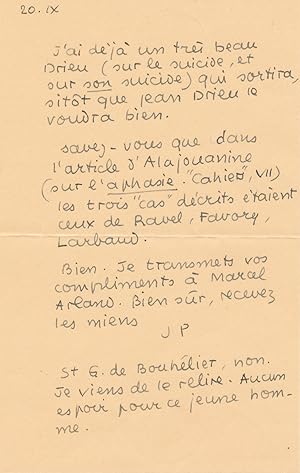 20. IX
J'ai déjà un très beau
Drieu (sur le suicide, et
sur son suicide) qui sortira,
sitôt que Jean Drieu le
voudra bien.
Savez-vous que dans
l'article d'Alajouanine
(sur l'aphasie. "Cahiers", VII)
les trois "cas" décrits étaient
ceux de Ravel, Favory,
Larbaud.
Bien. Je transmets vos
compliments à Marcel
Arland. Bien sûr, recevez
les miens
J P
St G. de Bouhélier, non.
Je viens de le relire. Aucun
espoir pour ce jeune hom-
me.